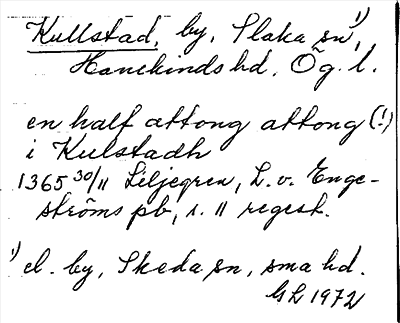 Kullstad, by, Slaka sn 1),
Hanekinds hd, Ög. l.
en half attong attong (!)
i Kulstadh
1365 30/11 Liljegren, L. v. Enge-
ströms pb, s. 11 regest.
1) el. by, Skeda sn, sma hd.
GL 1972